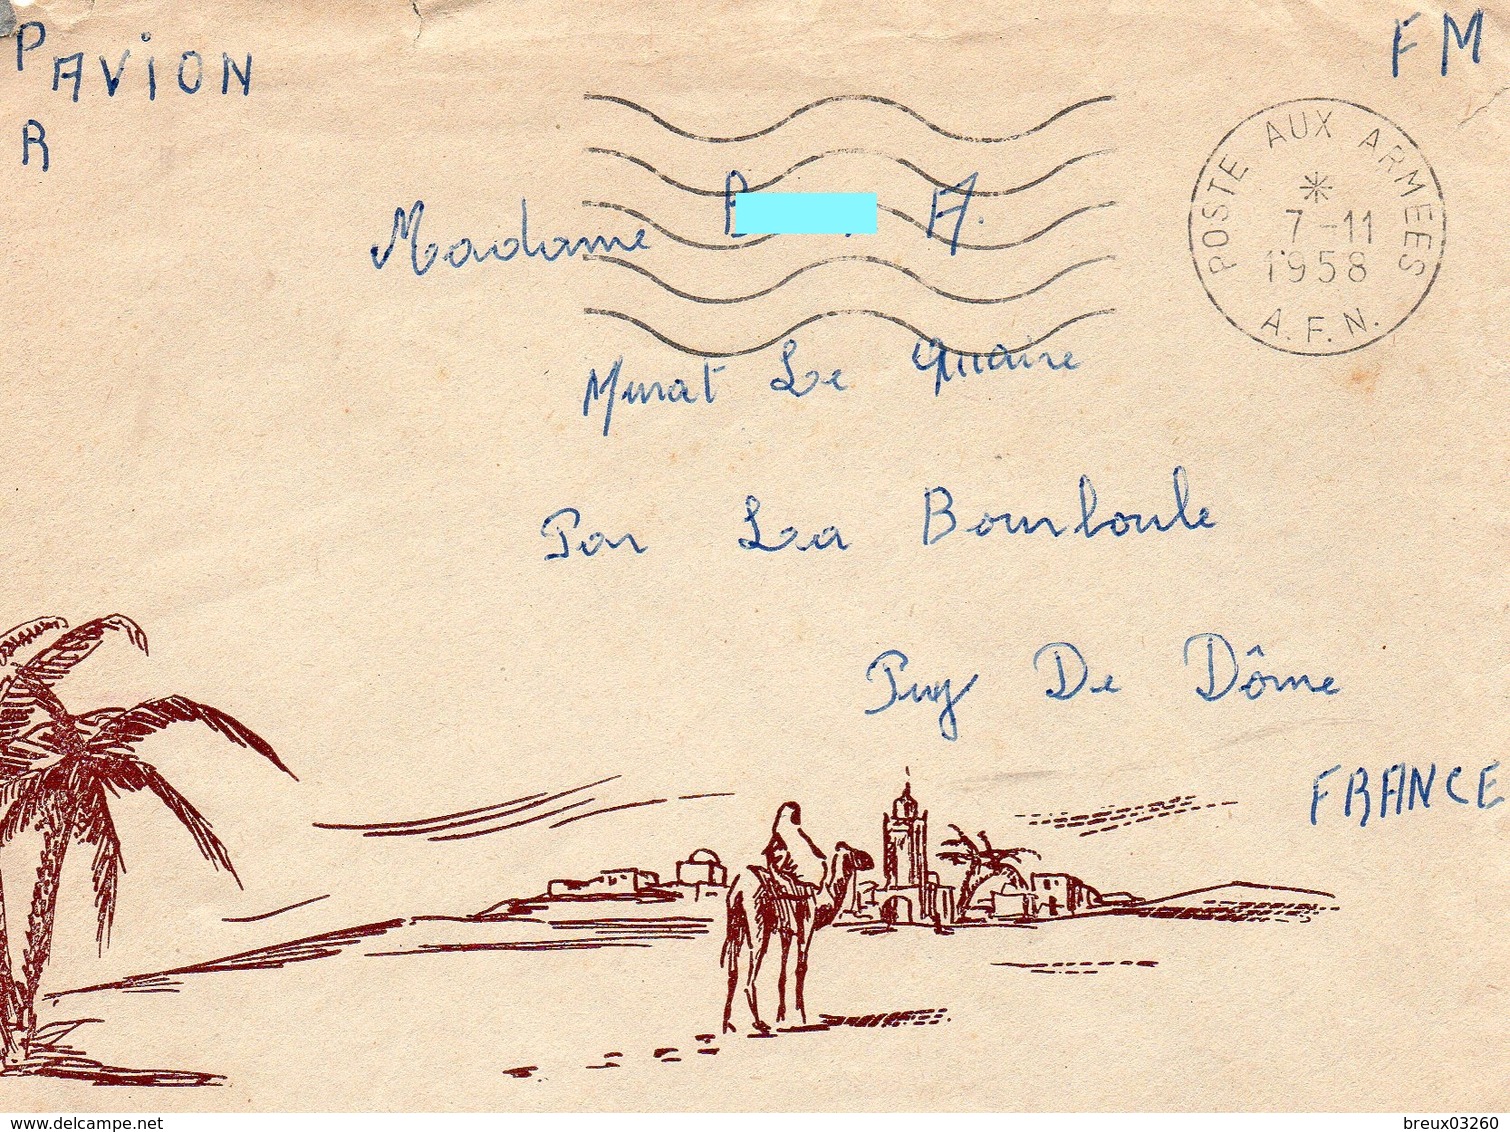 PAR AVION
FM
POSTE AUX ARMEES
7-11
1958
A.F.N.
Madame B A.
Murat Le Quaire
Par La Bourboule
Puy De Dôme
FRANCE
© delcampe.net
breux03260